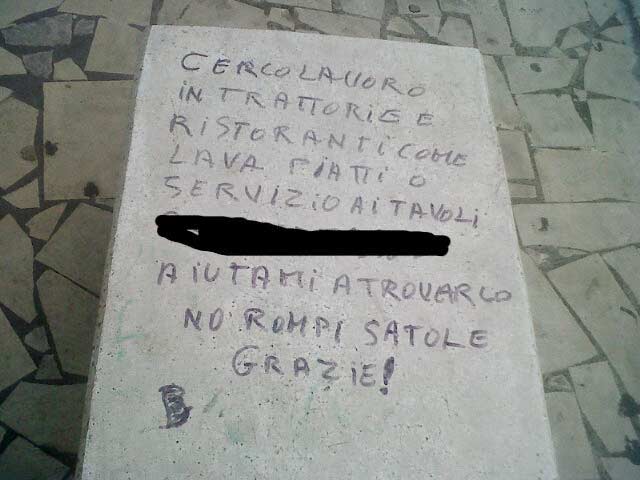 CERCO LAVORO
IN TRATTORIE E
RISTORANTI COME
LAVA PIATTI O
SERVIZIO AI TAVOLI
AIUTAMI A TROVARLO
NO ROMPI SATOLE
GRAZIE!
B